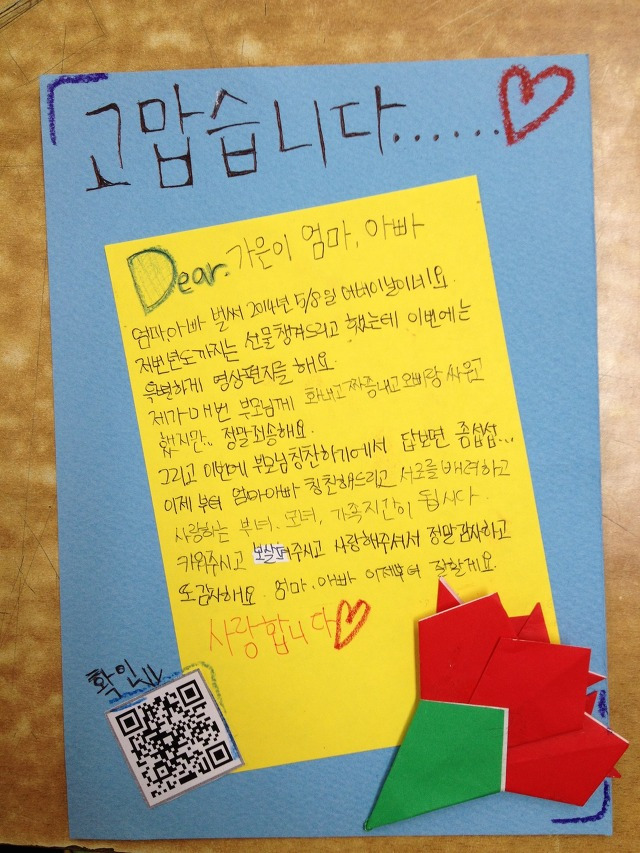 고맙습니다......
Dear. 가은이 엄마, 아빠
엄마,아빠 벌써 2014년 5/8일 어버이날이네요.
저번년도까지는 선물챙겨드리고 했는데 이번에는
특별하게 영상편지를 해요.
제가 매번 부모님께 화내고 짜증내고 오빠랑 싸우고
했지만.. 정말죄송해요.
그리고 이번에 부모님칭찬하기에서 답보면 좀섭섭...
이제 부터 엄마아빠 칭찬해드리고 서로를 배려하고
사랑하는 부녀, 모녀, 가족지간이 됩시다.
키워주시고 보살펴주시고 사랑해주셔서 정말감사하고
또감사해요. 엄마, 아빠 이제부터 잘할게요.
사랑합니다
확인